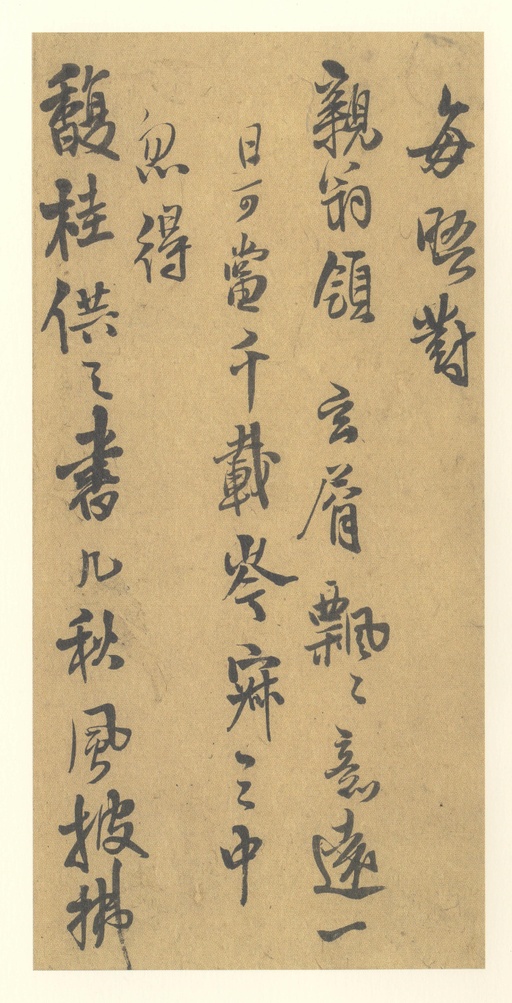 每晤對
親翁領玄屑飄〻意遠一
日可當千載岑寂之中
忽得
馥桂供之書几秋風披拂